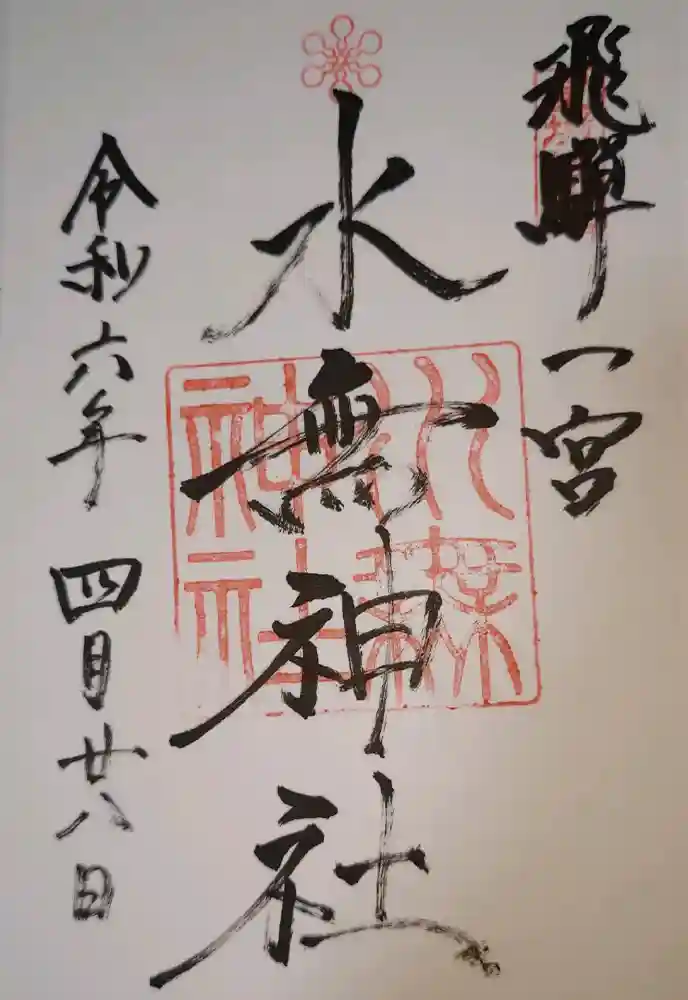 飛騨一宮
水無神社
令和六年 四月廿八日